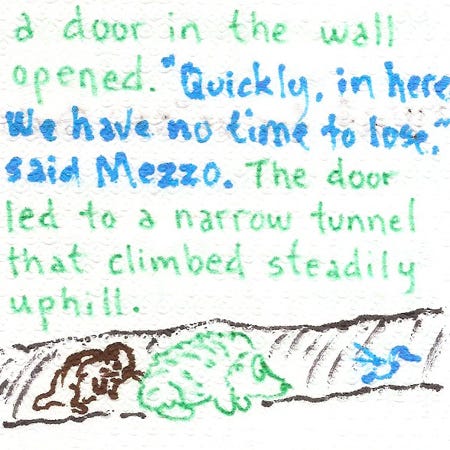 a door in the wall
opened. "Quickly, in here
We have no time to lose."
said Mezzo. The door
led to a narrow tunnel
that climbed steadily
uphill.